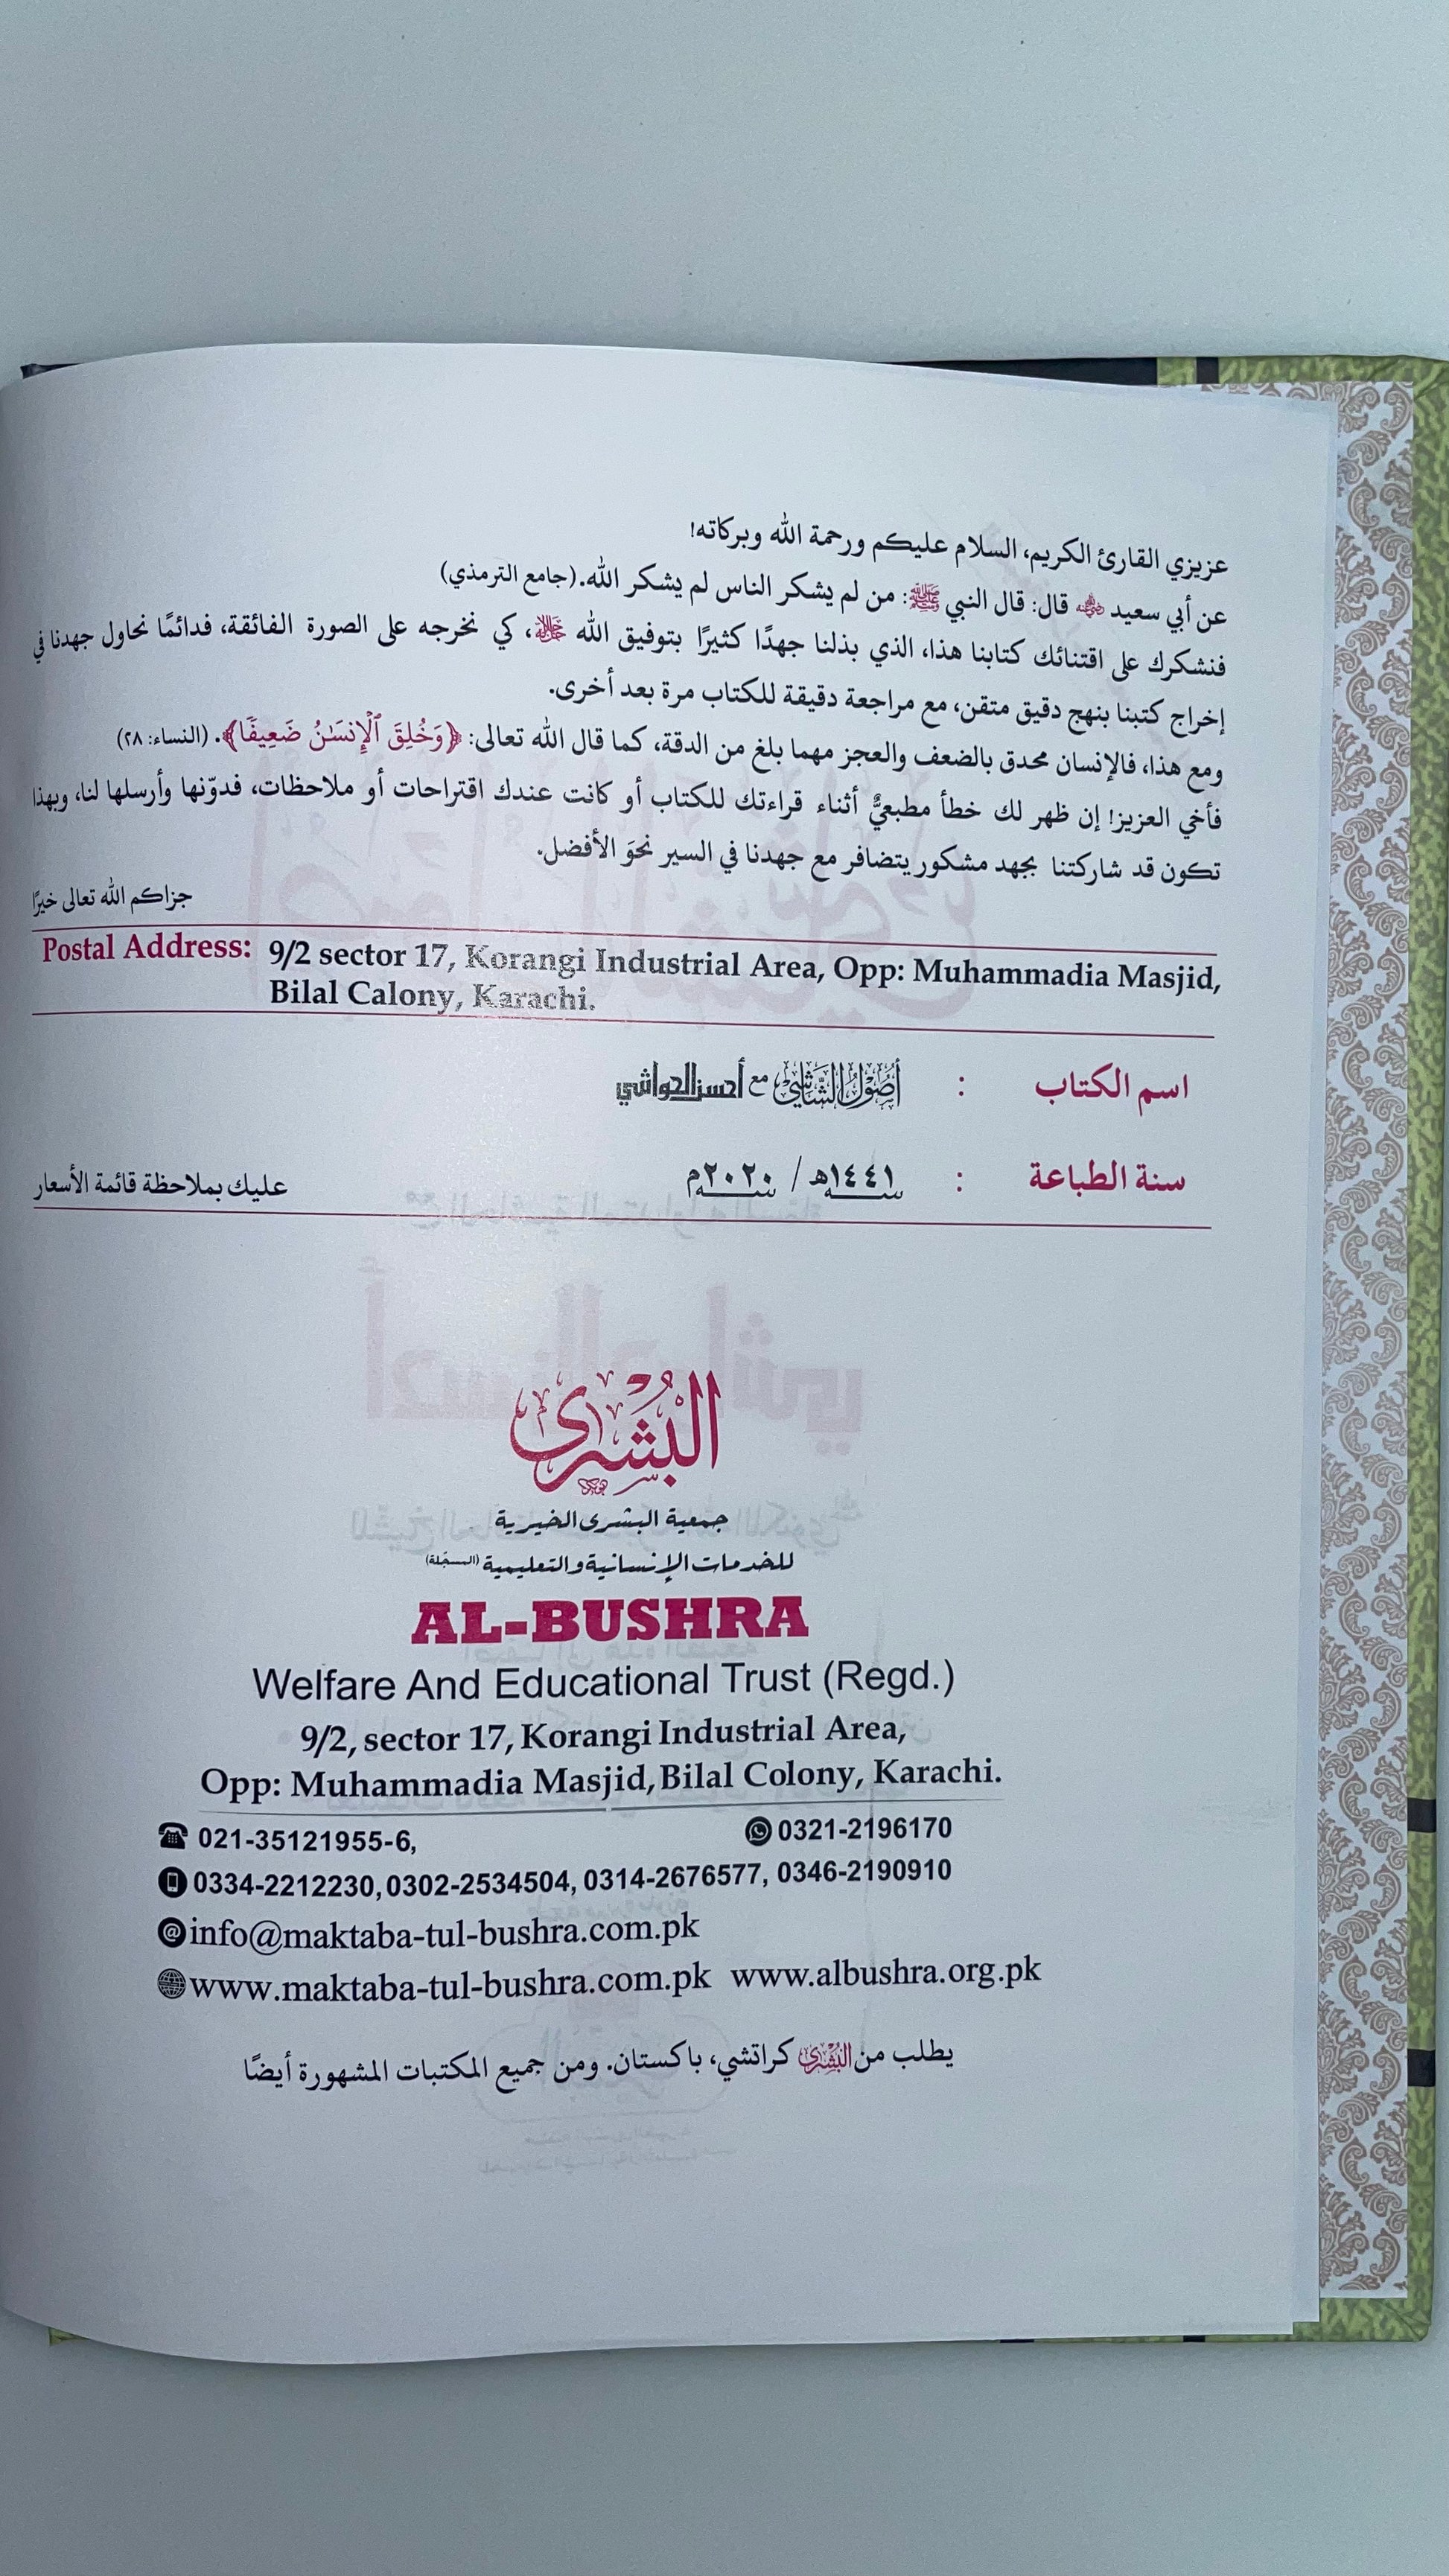 عزيزي القارئ الكريم، السلام عليكم ورحمة الله وبركاته!
عن أبي سعيد ﵁ قال: قال النبي ﷺ: من لم يشكر الناس لم يشكر الله. (جامع الترمذي)
فنشكرك على اقتنائك كتابنا هذا، الذي بذلنا جهدًا كثيرًا بتوفيق الله ﷻ، كي نخرجه على الصورة الفائقة، فدائمًا نحاول جهدنا في
إخراج كتبنا بنهج دقيق متقن، مع مراجعة دقيقة للكتاب مرة بعد أخرى.
ومع هذا، فالإنسان محدق بالضعف والعجز مهما بلغ من الدقة، كما قال الله تعالى: ﴿وَخُلِقَ ٱلْإِنسَـٰنُ ضَعِيفًا﴾. (النساء: ٢٨)
فأخي العزيز! إن ظهر لك خطأ مطبعيٌّ أثناء قراءتك للكتاب أو كانت عندك اقتراحات أو ملاحظات، فدوّنها وأرسلها لنا، وبهذا
تكون قد شاركتنا بجهد مشكور يتضافر مع جهدنا في السير نحوَ الأفضل.
جزاكم الله تعالى خيرًا
Postal Address: 9/2 sector 17, Korangi Industrial Area, Opp: Muhammadia Masjid,
Bilal Calony, Karachi.
اسم الكتاب : أُصُوْلُ الشَّاشِيْ مع أحسن الحواشي
سنة الطباعة : ١٤٤١ھ / ٢٠٢٠م عليك بملاحظة قائمة الأسعار
البُشْرى
جمعية البشرى الخيرية
للخدمات الإنسانية والتعليمية (المسجّلة)
AL-BUSHRA
Welfare And Educational Trust (Regd.)
9/2, sector 17, Korangi Industrial Area,
Opp: Muhammadia Masjid, Bilal Colony, Karachi.
021-35121955-6, 0321-2196170
0334-2212230, 0302-2534504, 0314-2676577, 0346-2190910
info@maktaba-tul-bushra.com.pk
www.maktaba-tul-bushra.com.pk www.albushra.org.pk
يطلب من البُشْرى كراتشي، باكستان. ومن جميع المكتبات المشهورة أيضًا